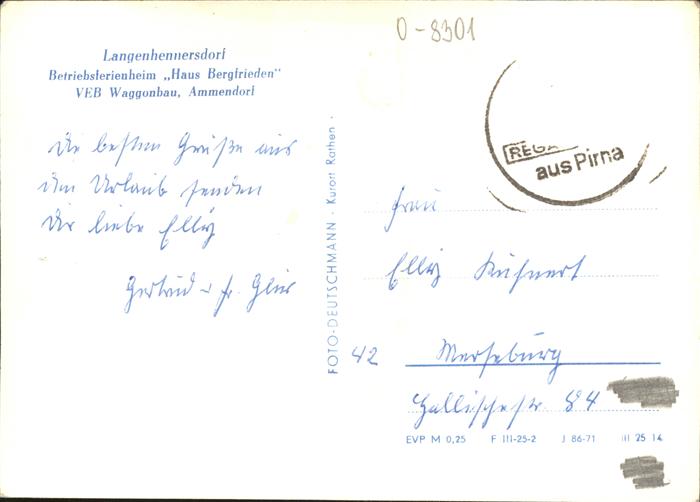 O-8301
Langenhennersdorf
Betriebsferienheim „Haus Bergfrieden"
VEB Waggonbau, Ammendorf
Die besten Grüße aus
dem Urlaub senden
Dir liebe Elly
Gertrud u. Fr.
FOTO-DEUTSCHMANN · Kurort Rathen ·
REG
aus Pirna
Frau
Elly Kuhnert
42 Merseburg
Hallischestr 84
EVP M 0,25 F III-25-2 J 86-71 III 25 14